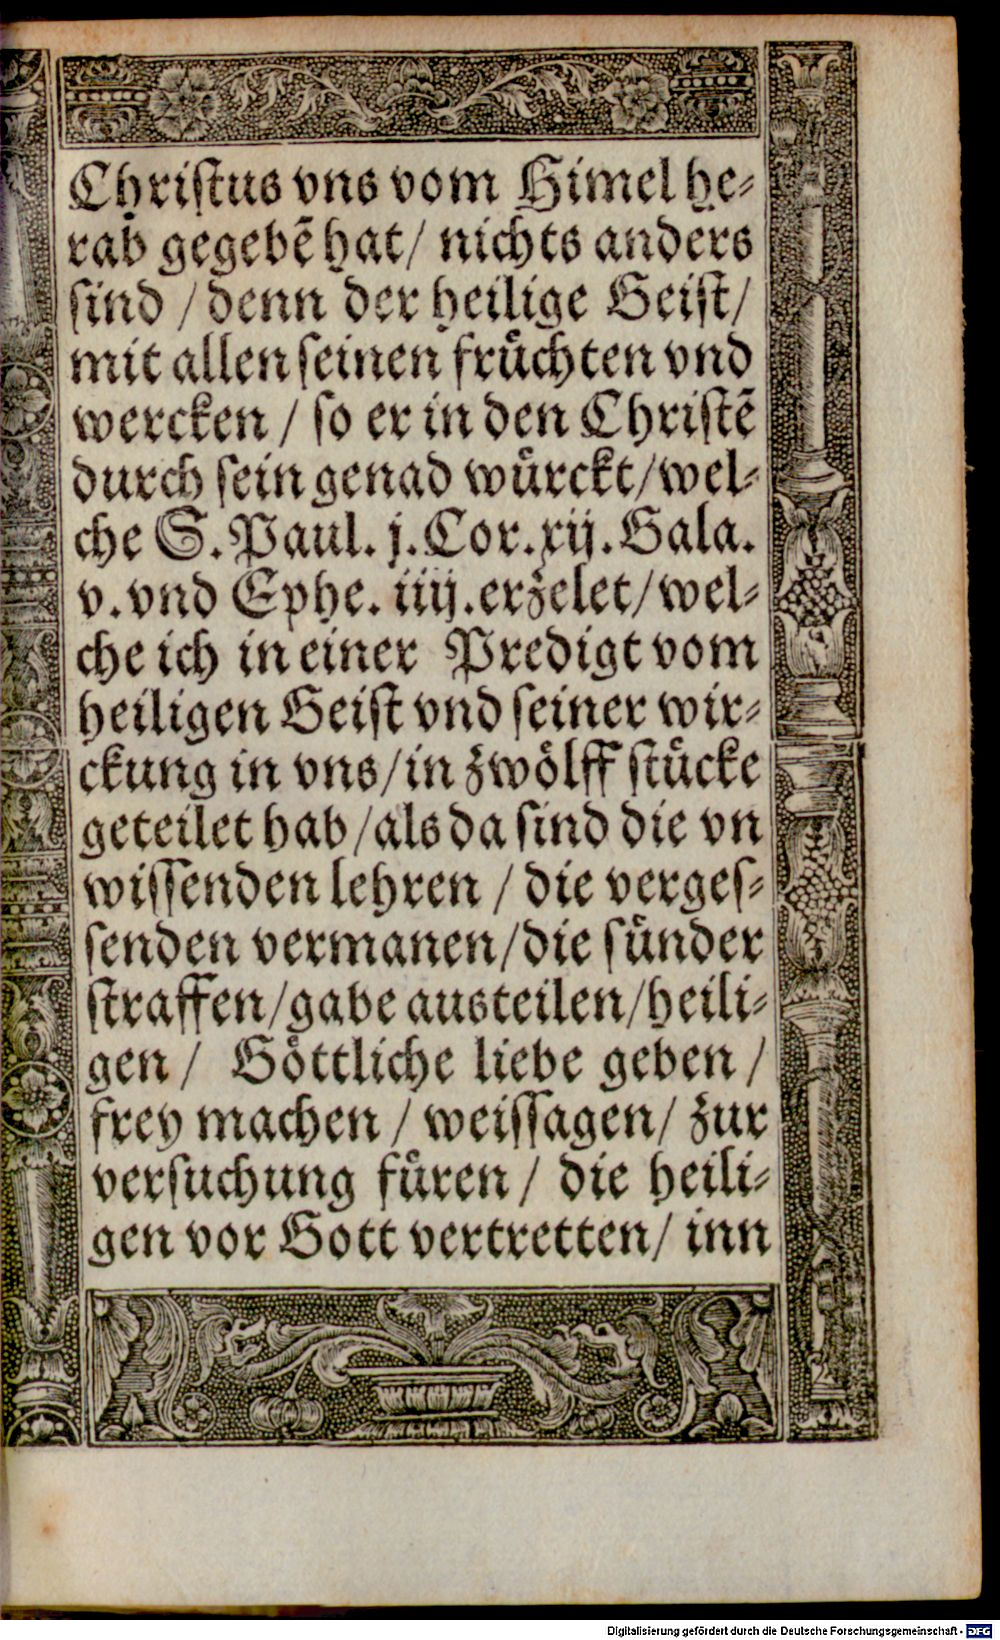 Christus vns vom Himel he⸗
rab gegebẽ hat/ nichts anders
sind / denn der heilige Geist/
mit allen seinen früchten vnd
wercken / so er in den Christẽ
durch sein genad würckt/wel⸗
che S. Paul. j. Cor. xij. Gala.
v. vnd Ephe. iiij. erzelet/wel⸗
che ich in einer Predigt vom
heiligen Geist vnd seiner wir⸗
ckung in vns/in zwölff stücke
geteilet hab/als da sind die vn
wissenden lehren / die verges⸗
senden vermanen/die sünder
straffen/gabe austeilen/heili⸗
gen / Göttliche liebe geben /
frey machen / weissagen/ zur
versuchung füren / die heili⸗
gen vor Gott vertretten/ inn
Digitalisierung gefördert durch die Deutsche Forschungsgemeinschaft - DFG